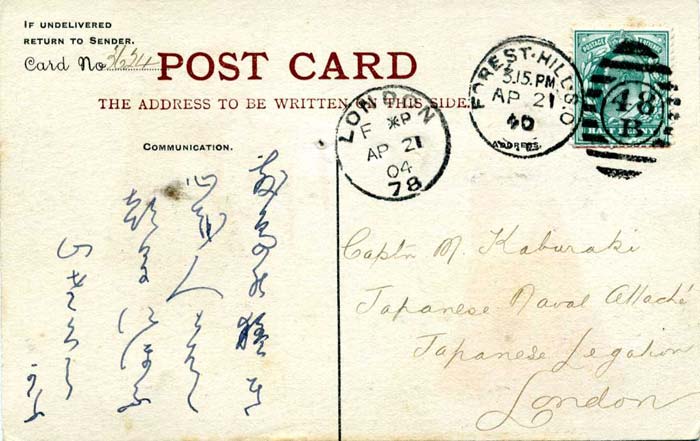 IF UNDELIVERED
RETURN TO SENDER.
Card No
POST CARD
THE ADDRESS TO BE WRITTEN ON THIS SIDE.
COMMUNICATION.
敷島の
心 人
朝日 にほふ
山さくら
LONDON
AP 21
04
78
FOREST-HILL S.O
3.15.PM
AP 21
POSTAGE
HALFPENNY
48
B
Captn M. Kaburaki
Japanese Naval Attaché
Japanese Legation
London